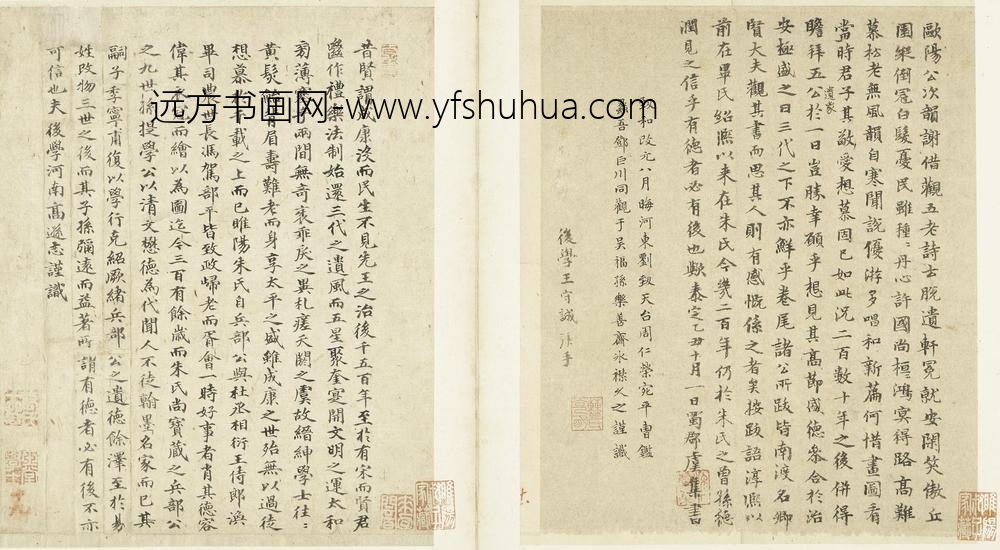 歐陽公次韻謝借觀五老詩云脫遺軒冕就安閑笑傲丘
園縱倒冠白髮憂民雖種〻丹心許國尚桓鴻冥得路高難
慕松老無風韻自寒聞說優游多唱和新篇何惜畫圖看
當時君子其敬愛想慕固已如此況二百數十年之後併得
瞻拜五公於一日豈勝幸願乎想見其高節盛德參合於治
遺象
安極盛之日三代之下不亦鮮乎卷尾諸公所跋皆南渡名卿
賢大夫觀其書而思其人則有感慨係之者矣按跋語淳熙以
前在畢氏紹熙以來在朱氏今幾二百年仍於朱氏之曾孫德
潤見之信乎有德者必有後也歟泰定乙丑十月一日蜀郡虞集書
和改元八月晦河東劉 天台周仁榮宛平曹鑑
吾鄒巨川同觀于吳 孫樂善齋 襟久之謹識
後學王守誠 拜手
昔賢謂成康沒而民生不見先王之治後千五百年至於有宋而賢君
繼作禮樂法制始還三代之遺風而五星聚奎寔開文明之運太和
薄 兩間無奇衺乖戾之異札瘥夭閼之虞故縉紳學士往〻
黃髮 眉壽難老而身享太平之盛雖成康之世殆無以過徒
想慕 載之上而已睢陽朱氏自兵部公與杜丞相衍王侍郎渙
畢司農世長馮駕部平皆致政歸老而胥會一時好事者肖其德容
偉其 而繪以為圖迄今三百有餘歲而朱氏尚寶藏之兵部公
之九世孫提學公以清文懋德為代聞人不徒翰墨名家而已其
嗣子季寧甫復以學行克紹厥緒兵部公之遺德餘澤至於易
姓改物三世之後而其子孫彌遠而益著所謂有德者必有後不亦
可信也夫後學河南高遜志謹識
远方书画网-www.yfshuhua.com